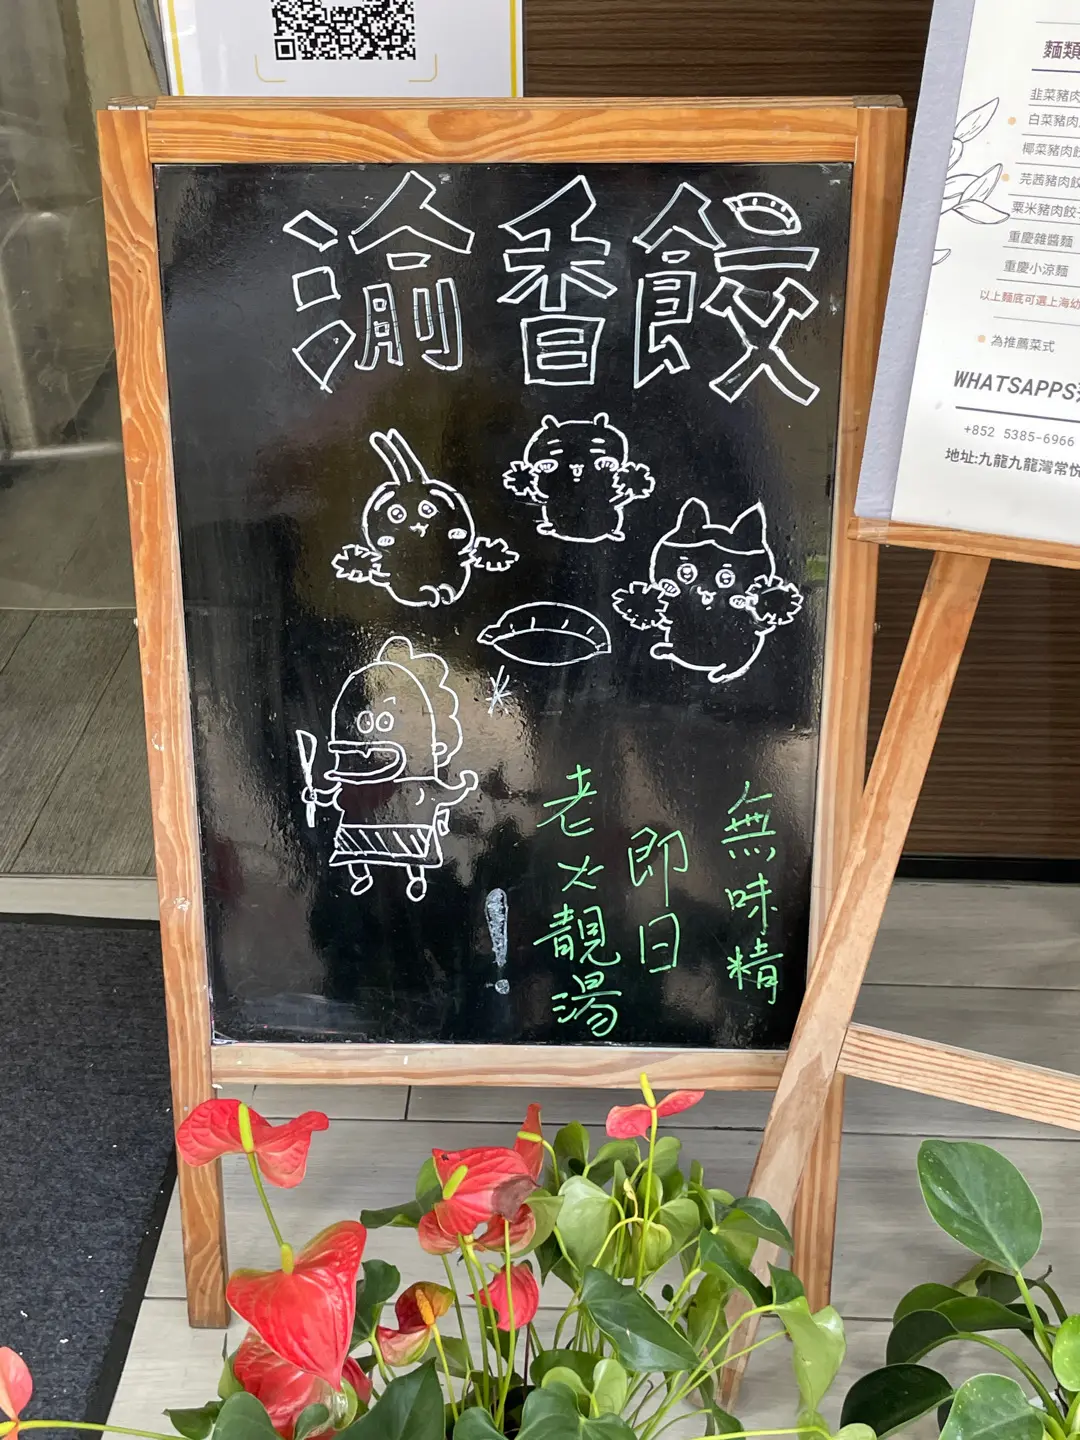 渝香餃
無味精
即日
老火靚湯
！
麵類
韭菜豬肉
白菜豬肉
椰菜豬肉餃
芫茜豬肉餃
粟米豬肉餃
重慶雜醬麵
重慶小涼麵
以上麵底可選上海幼
為推薦菜式
WHATSAPPS
+852 5385-6966
地址:九龍九龍灣常悅